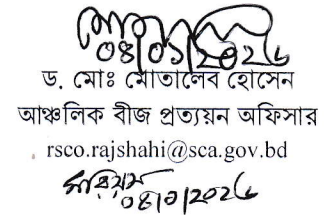 ০৪/০১/২০২৬
ড. মোঃ মোতালেব হোসেন
আঞ্চলিক বীজ প্রত্যয়ন অফিসার
rsco.rajshahi@sca.gov.bd
০৪/০১/২০২৬